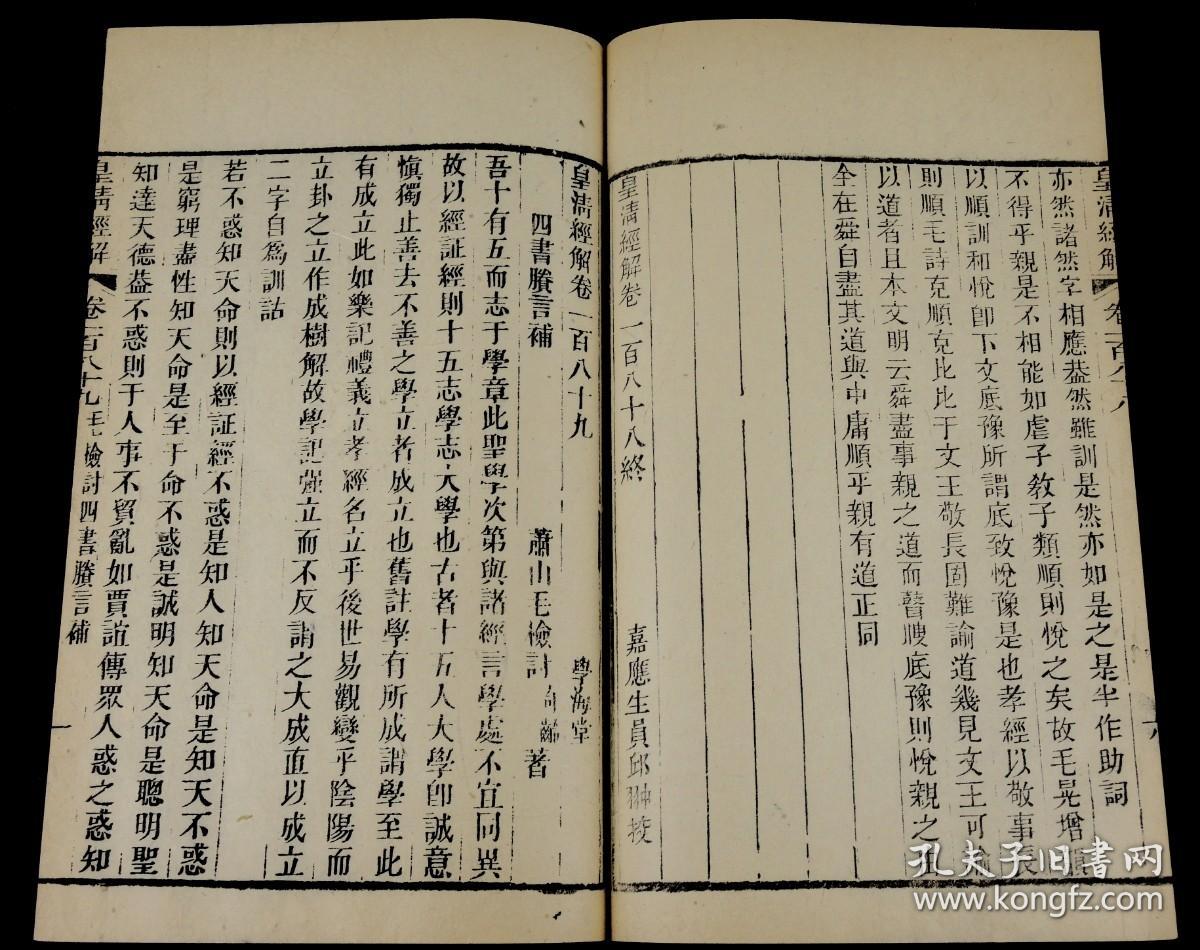 皇清經解
卷一百八十八
六
亦然諸然字相應葢然雖訓是然亦如是之是半作助詞
不得乎親是不相能如虐子敎子類順則悅之矣故毛晃增韻
以順訓和悅卽下文底豫所謂底致悅豫是也孝經以敬事長
則順毛詩克順克比比于文王敬長固難諭道幾見文王可諭
以道者且本文明云舜盡事親之道而瞽瞍底豫則悅親之
全在舜自盡其道與中庸順乎親有道正同
皇淸經解卷一百八十八終
嘉應生員邱翀挍
皇淸經解卷一百八十九
學海堂
四書賸言補
蕭山毛檢討奇齡著
吾十有五而志于學章此聖學次第與諸經言學處不宜同異
故以經証經則十五志學志大學也古者十五人大學卽誠意
愼獨止善去不善之學立者成立也舊註學有所成謂學至此
有成立此如樂記禮義立孝經名立乎後世易觀變乎陰陽而
立卦之立作成樹解故學記强立而不反謂之大成直以成立
二字自爲訓詁
若不惑知天命則以經証經不惑是知人知天命是知天不惑
是窮理盡性知天命是至于命不惑是誠明知天命是聰明聖
知達天德葢不惑則于人事不貿亂如賈誼傳眾人惑之惑知
皇淸經解
卷一百八十九毛檢討四書賸言補
一
孔夫子旧书网
www.kongfz.com